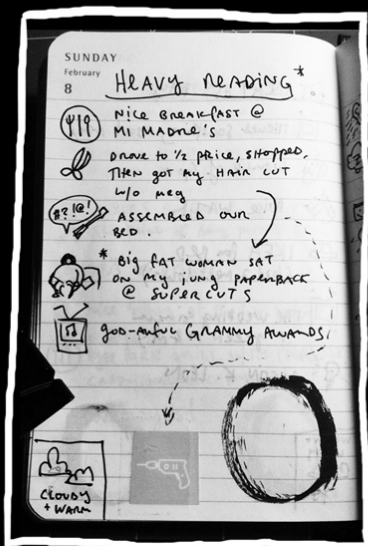 SUNDAY
February
8
HEAVY READING*
NICE BREAKFAST @
MI MADRE'S
DROVE TO 1/2 PRICE, SHOPPED,
THEN GOT MY HAIR CUT
W/O MEG
#?!@!
ASSEMBLED OUR
BED.
* BIG FAT WOMAN SAT
ON MY JUNG PAPERBACK
@ SUPERCUTS
GOD-AWFUL GRAMMY AWARDS.
CLOUDY
+ WARM